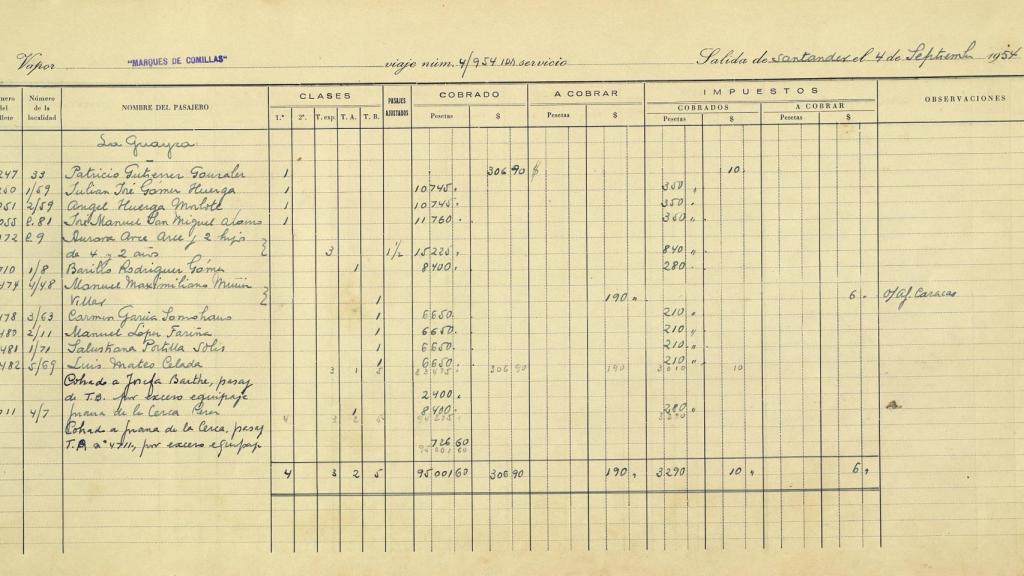 Vapor "MARQUES DE COMILLAS" viaje núm. 4/954 servicio Salida de Santander el 4 de Septiembre 1954
Número de la localidad NOMBRE DEL PASAJERO CLASES PASAJES AJUSTADOS COBRADO A COBRAR IMPUESTOS OBSERVACIONES
COBRADOS A COBRAR
1.ª 2.ª T. exp. T. A. T. B. Pesetas $ Pesetas $ Pesetas $ Pesetas $
La Guayra
247 33 Patricio Gutierrez Gonzalez 1 306 90 $ 10
1/59 Julian José Gomez Huerga 1 10745 350 "
051 2/59 Angel Huerga 1 10745 350 "
055 C. 81 José Manuel San Miguel Alonso 1 11760 360 "
072 C 9 Aurora Arce Arce y 2 hijos
de 4 y 2 años 3 1 1/2 15225 840 "
710 1/8 Rodriguez Gómez 1 8400 280
474 4/48 Manuel Maximiliano
Villar 1 190 " 6 Caracas
478 3/63 Carmen Garcia 1 6650 210 "
480 2/11 Manuel López Fariña 1 6650 210 "
481 1/71 Salustiana Portilla Solis 1 6650 210 "
482 5/69 Luis Mateo Celada 1 6650 210 "
3 1 5 306 90 190 3010 10
Cobrado a Josefa Barthe, pasaj
de T.B. por exceso equipaje 2400
711 4/7 Juana de la Cerca Perez 1 8400 280 "
4 3 2 5 3290
Cobrado a Juana de la Cerca, pasaj
T.A nº 4711, por exceso equipaje 726 60
95001 60
4 3 2 5 95001 60 306 90 190 " 3290 10 " 6 "